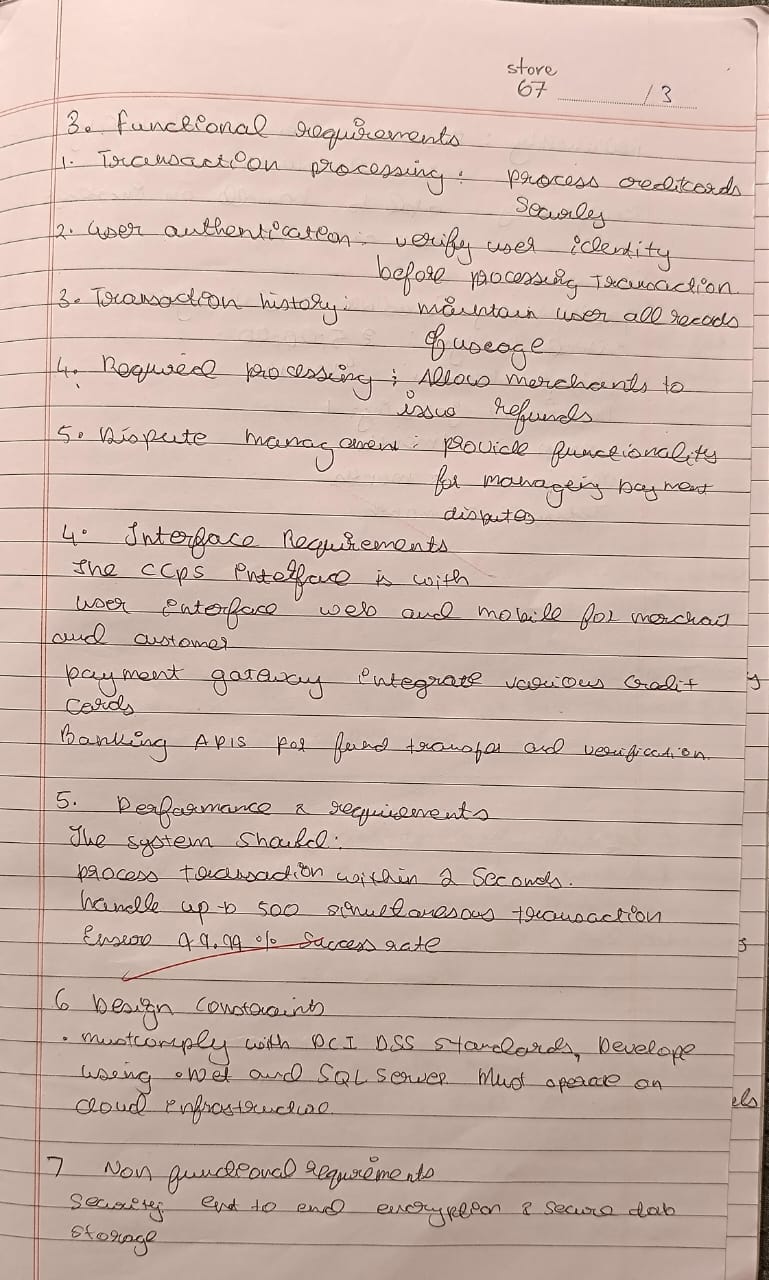 store
67 /3
3. functional requirements
1. Transaction processing: process creditcards
Securley
2. User authentication: verify user identity
before processing Transaction
3. Transaction history: maintain user all recods
of useage
4. Requied processing: Allow merchants to
issue refunds
5. Dispute management: provide functionality
for manageing payment
disputes
4. Interface Requirements
The CCPS Interface is with
user interface web and mobile for merchant
and customer
payment gateway integrate various Credit
Cards
Banking APIS for fund transfer and verification.
5. Performance & requirements
The system Should:
process transaction within 2 Seconds.
handle up to 500 simultanesous transaction
Ensure 99.99% Success rate
6 Design Constraints
• mustcomply with PCI DSS standards, Develope
using and SQL Server. Must operate on
cloud infrastructure
7 Non functional requirements
Security end to end encryption & secure
storage
y
s
els